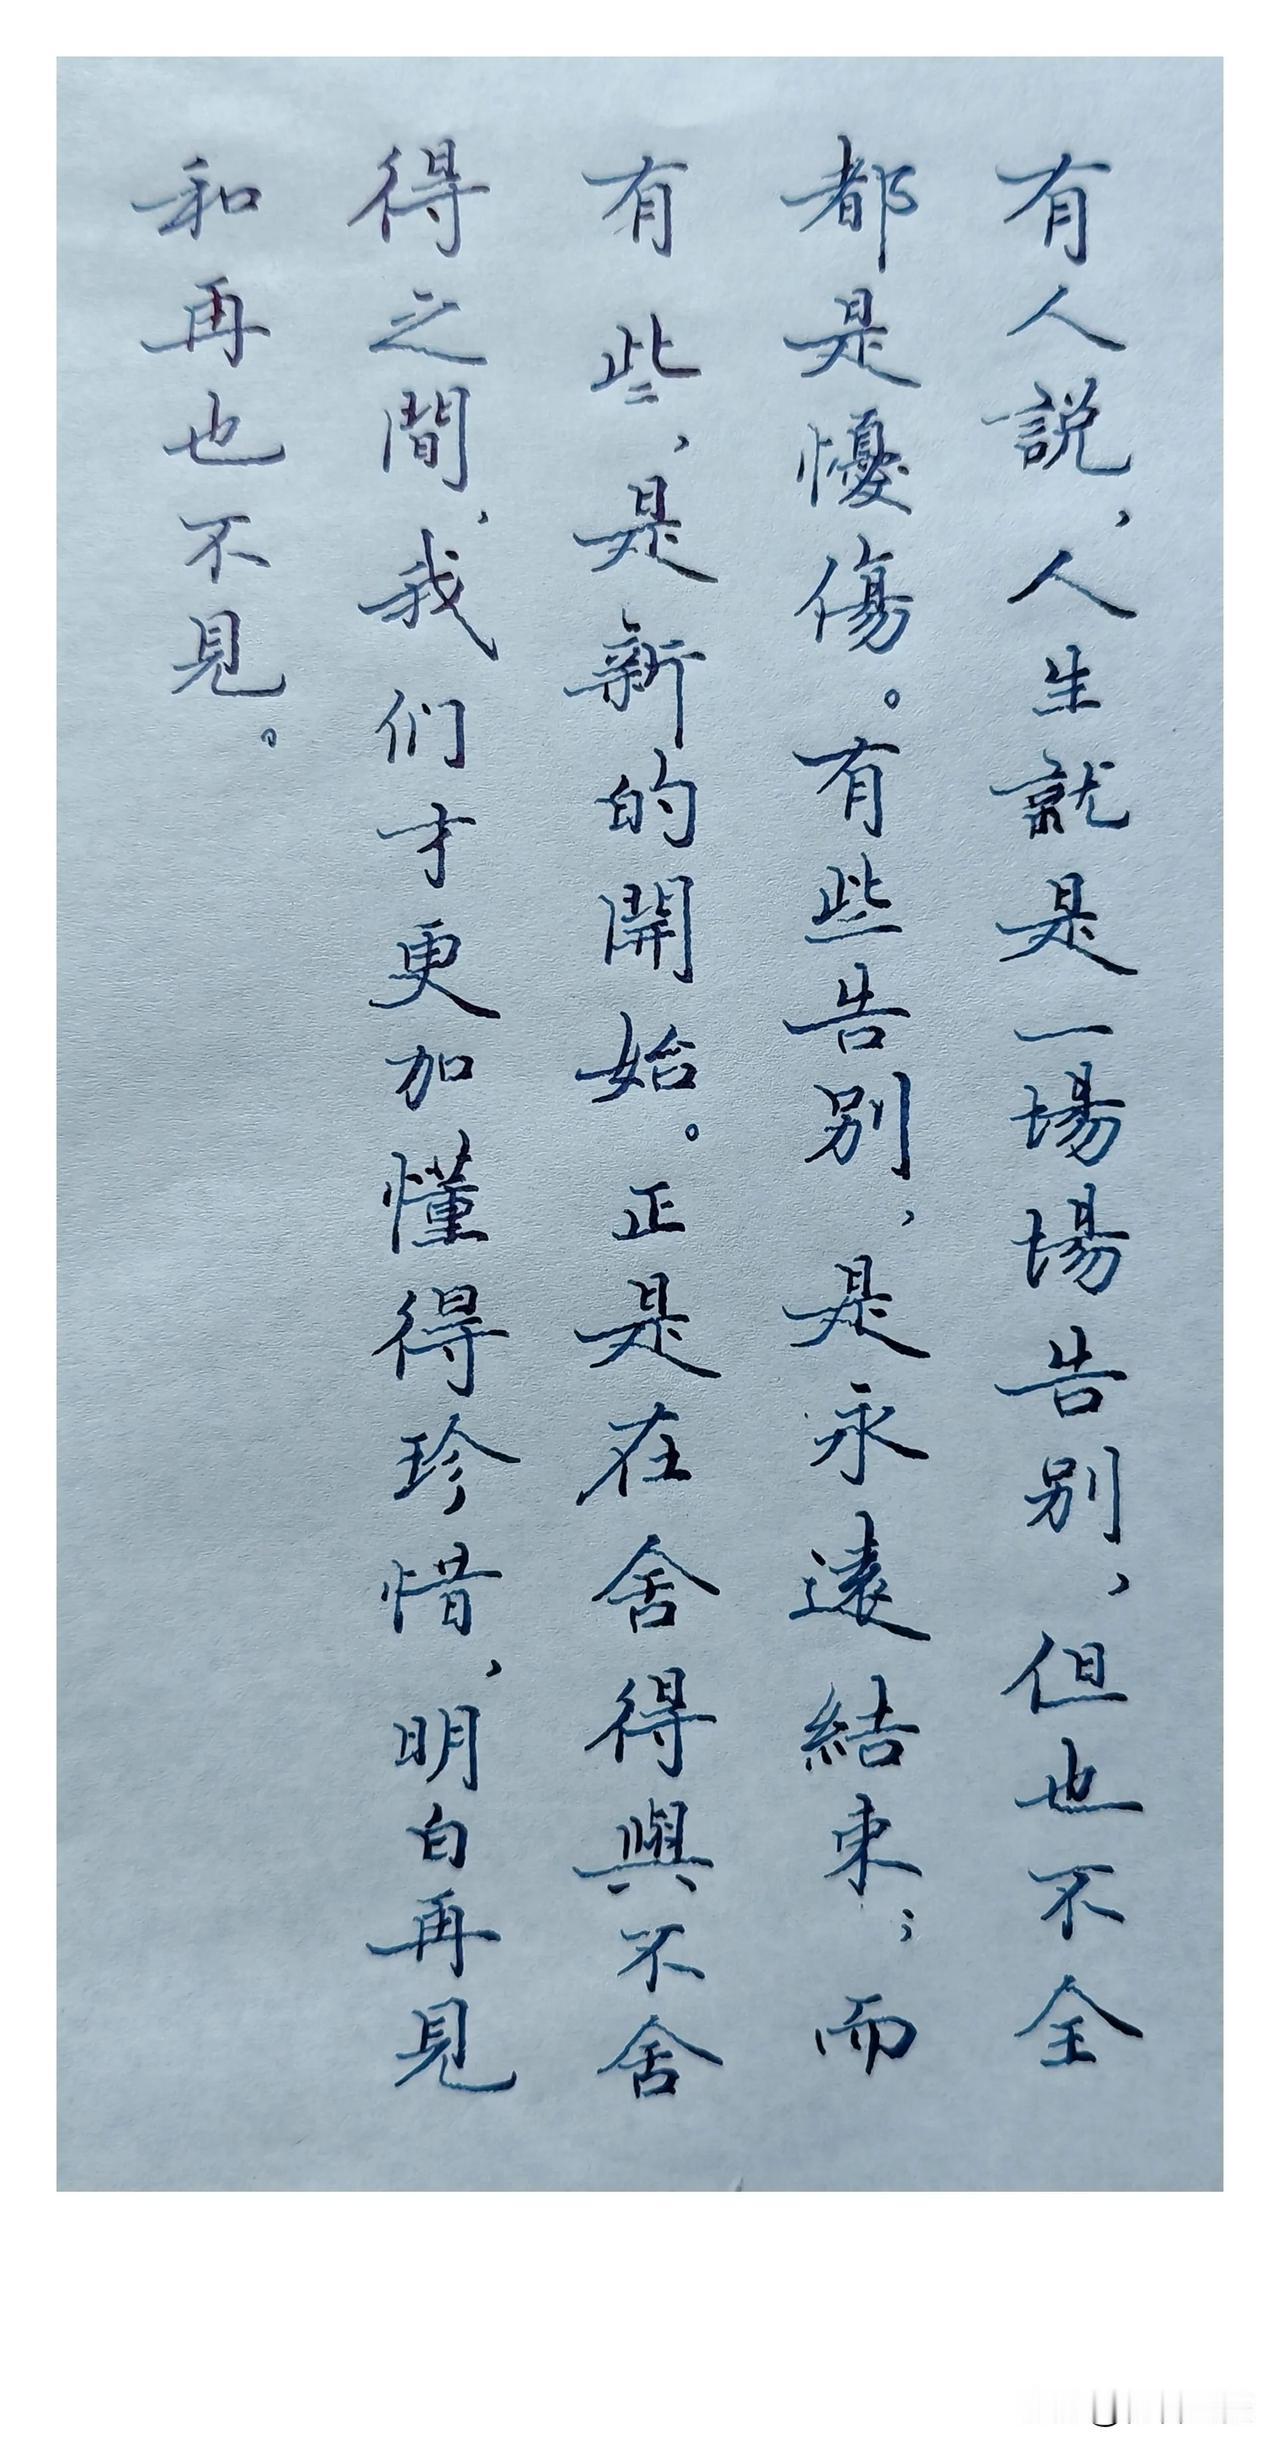 有人説，人生就是一場場告别，但也不全
都是懮傷。有些告别，是永遠結束；而
有些，是新的開始。正是在舍得與不舍
得之間，我们才更加懂得珍惜，明白再見
和再也不見。